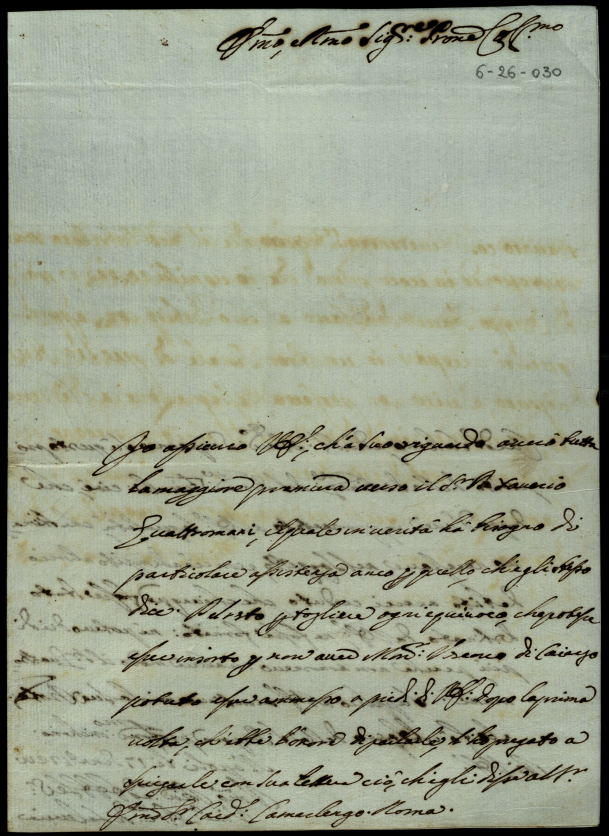 Emo, e Rmo Sig.re Prone Col.mo
6-26-030
Io assicuro V.E., ch'a suo riguardo avrò tutta
la maggiore premura verso il d.o P. Saverio
Quattromani, il quale in verità hà bisogno di
particolare assistenza anco p quello ch'egli stesso
dice. Del resto p togliere ogni equivoco, che potesse
esser insorto p non aver Mons.r Vescovo di Cajazzo
potuto esser ammesso a piedi di V.E. dopo la prima
volta, ch'ebbe l'onore di parlarle, l'hò pregato a
spiegarle con sua lettera ciò, ch'egli disse all'
Emo S.r Card. Camerlengo. Roma.